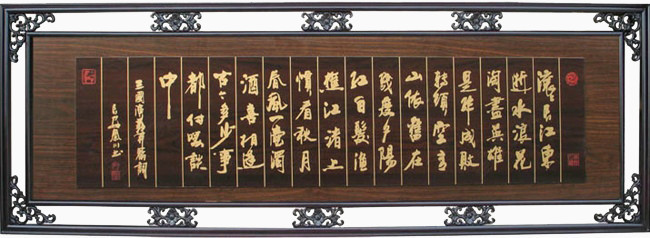 滾滾長江東
逝水浪花
淘盡英雄
是非成敗
轉頭空青
山依舊在
幾度夕陽
紅白髮漁
樵江渚上
慣看秋月
春風一壺濁
酒喜相逢
古今多少事
都付笑談
中
三國演義開篇詞